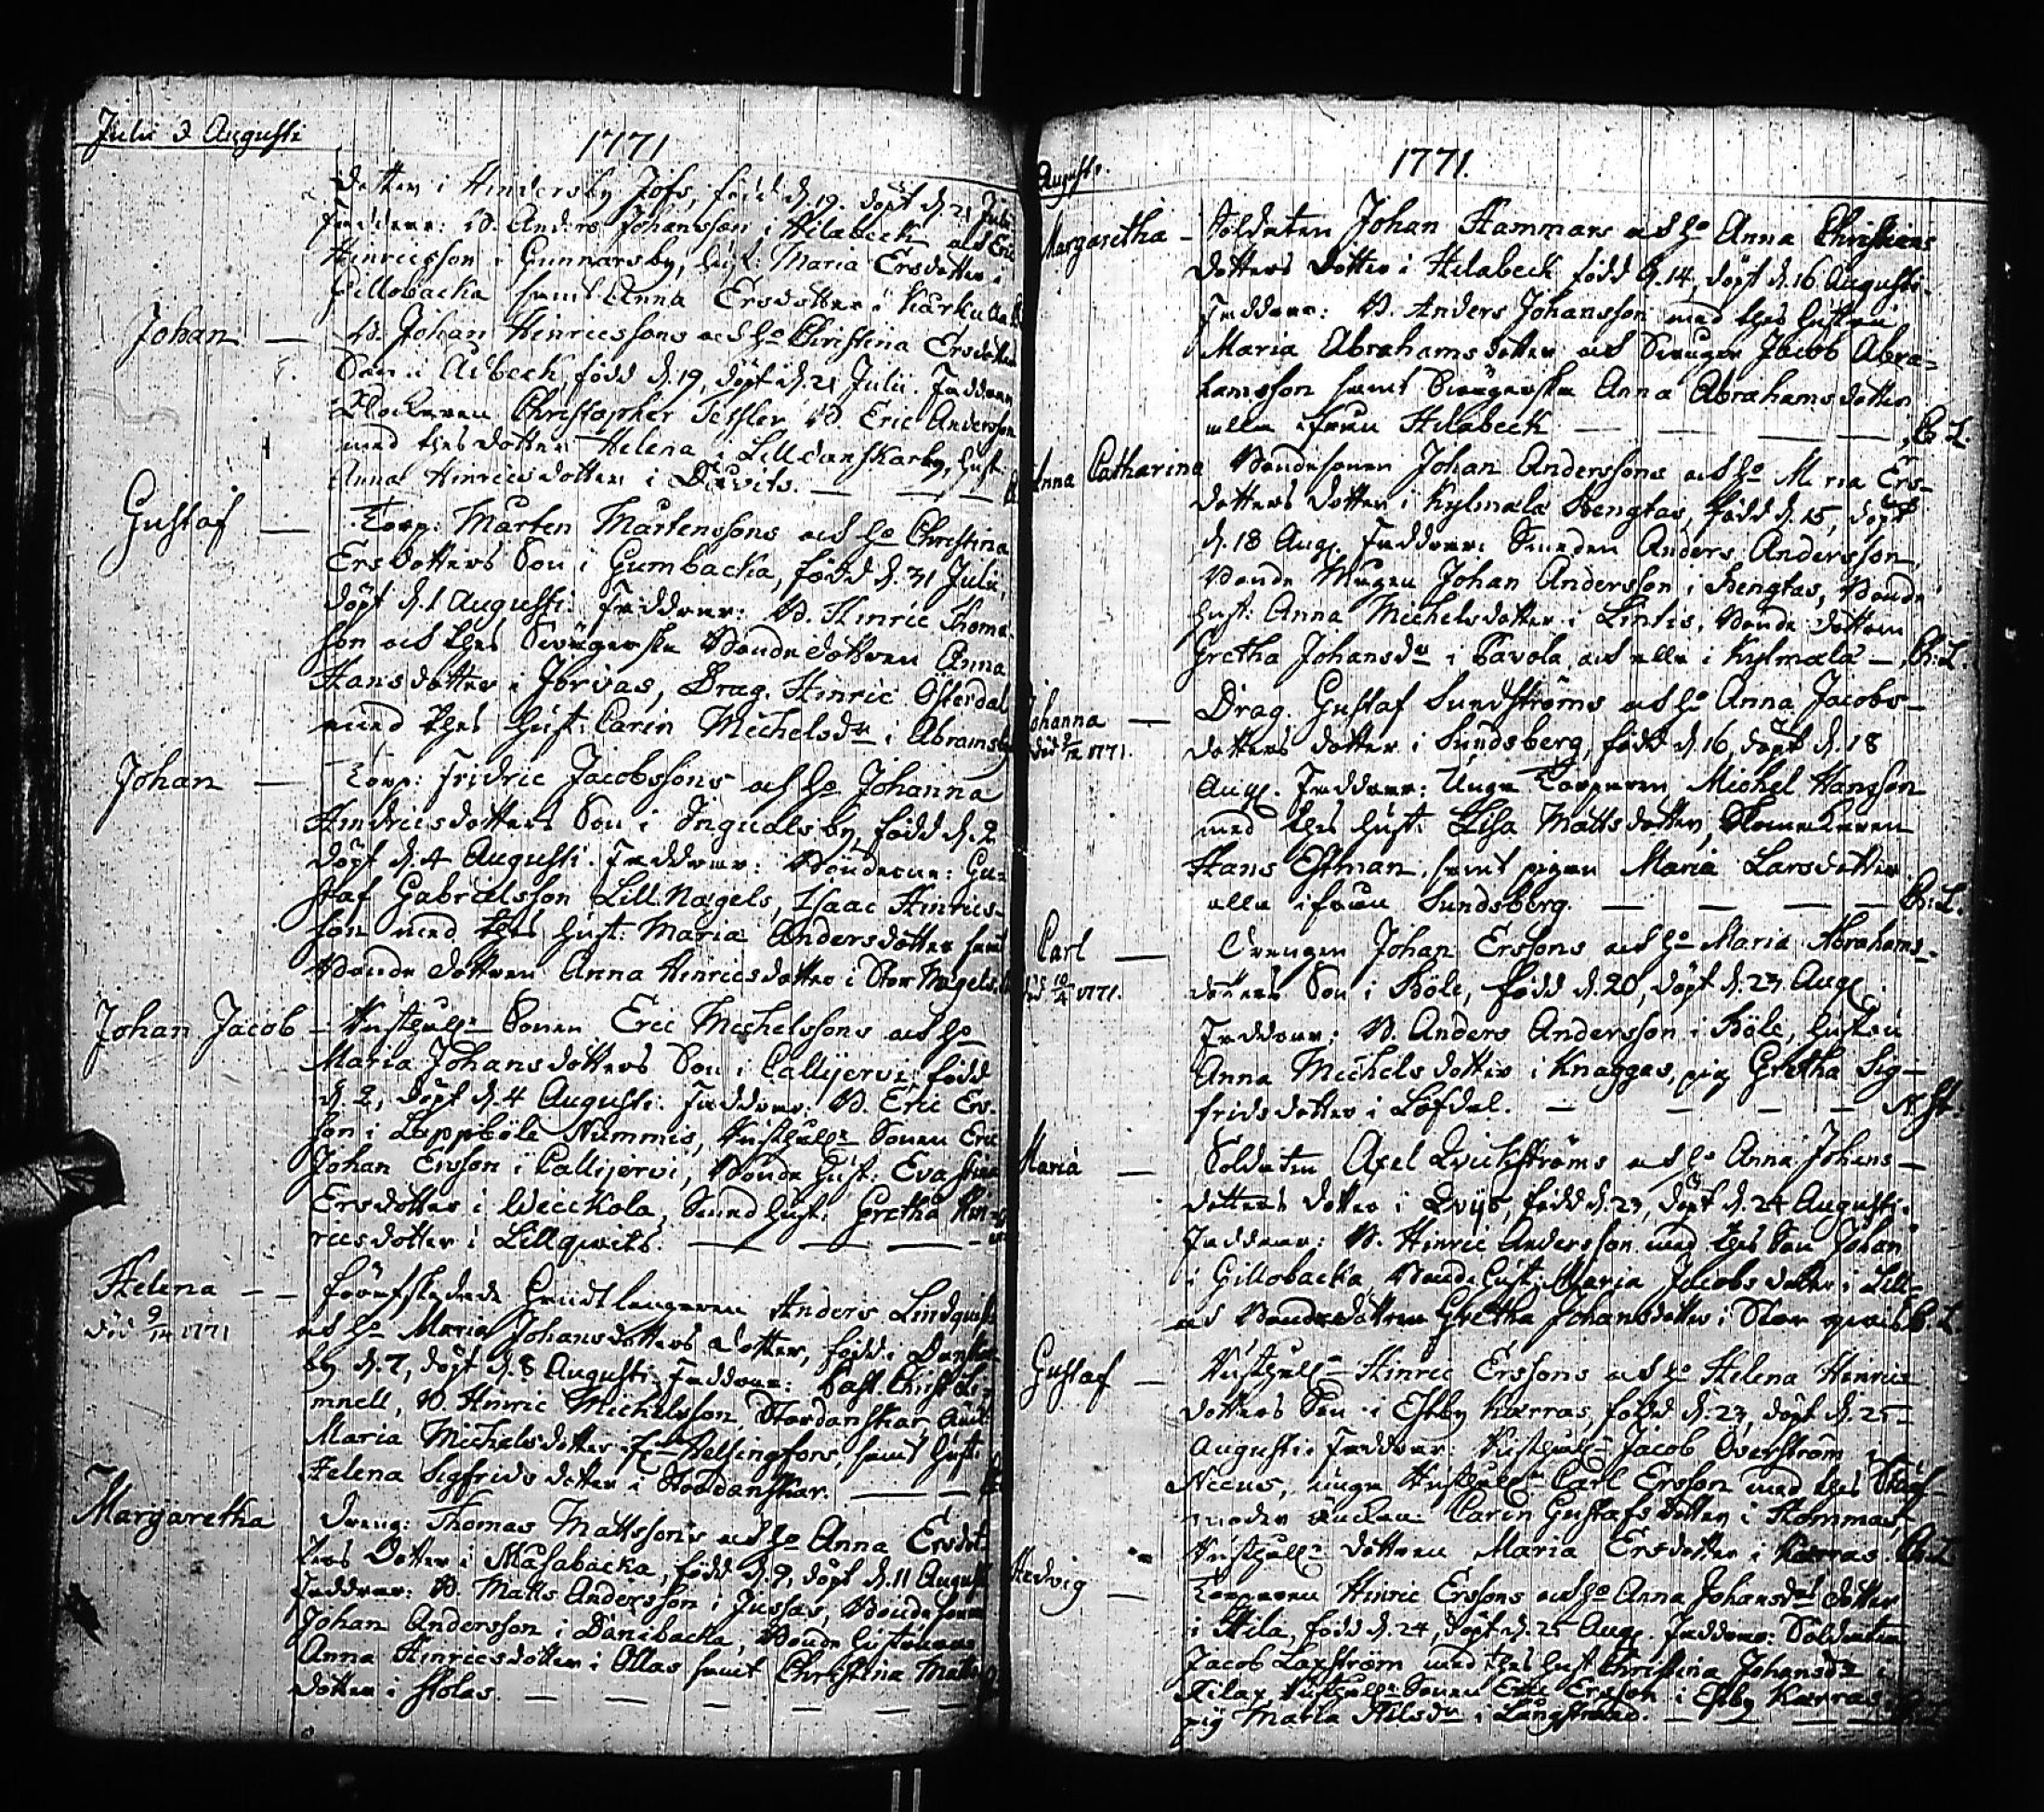 Julii & Augusti
1771
Dotter i Hindersby Jofs, född d. 19. döpt d. 21 Julii
Faddrar: B. Anders Johansson i Hilabeck och Eric
Hinricsson i Gunnarsby, hust: Maria Ersdotter i
Gillobacka samt Anna Ersdotter i Karku
Johan — B. Johan Hinricssons och h:o Christina Ersdotters
Son i Aibeck, född d. 19, döpt d. 21 Julii. Faddrar
Klockaren Christopher Tessler, B. Eric Andersson
med thes dotter Helena i Lilldanskarby, hust.
Anna Hinricsdotter i Davits. — — —
Gustaf — Torp: Mårten Mårtenssons och h:o Christina
Ersdotters Son i Gumbacka, född d. 31 Julii,
döpt d. 1 Augusti. Faddrar: B. Hinric Thoma-
son och thes Swägerska Bondedottren Anna
Hansdotter i Jorvas, Drag. Hinric Österdal
med thes hust: Carin Michelsdr i Abramsby
Johan — Torp: Fridric Jacobssons och h:o Johanna
Hindricsdotters Son i Ingvalsby, född d. 2
döpt d. 4 Augusti. Faddrar: Bönderne: Gu-
staf Gabrielsson Lill Nägels, Isaac Hinrics-
son med thes hust: Maria Andersdotter samt
Bonde dottren Anna Hinricsdotter i Stor Nägels.
Johan Jacob — Rusthåll: Sonen Eric Michelssons och h:o
Maria Johansdotters Son i Callijervi, född
d. 2, döpt d. 4 Augusti. Faddrar: B. Eric Ers-
son i Lappböle Nummis, Rusthåll: Sonen Eric
Johan Ersson i Callijervi, Bonde hust: Eva
Ersdotter i Weickola, Smed hust: Gretha Hin-
ricsdotter i Lillqwits. — — —
Helena — — Förafskedade Handtlangaren Anders Lindquists
död 9/14 1771 och h:o Maria Johansdotters dotter, född i Danskar-
by d. 7, döpt d. 8 Augusti. Faddrar: Past. Christ. Li-
mnell, B. Hinric Michelsson Stordanskar,
Maria Michelsdotter fr. Helsingfors, samt hust:
Helena Sigfridsdotter i Stordanskar. — —
Margaretha Dreng: Thomas Mattssons och h:o Anna Ersdot-
ters Dotter i Masabacka, född d. 9, döpt d. 11 Augusti
Faddrar: B. Matts Andersson i Jussas, Bondesonen
Johan Andersson i Danibacka, Bonde hustrurne
Anna Hinricsdotter i Ollas samt Christina Matts-
dotter i Stolas. — — — — —
Augusti.
1771.
Margaretha — Soldaten Johan Hammars och h:o Anna Christians
dotters dotter i Hilabeck född d. 14, döpt d. 16 Augusti.
Faddrar: B. Anders Johansson med thes hustru
Maria Abrahamsdotter och Swåger Jacob Abra-
hamsson samt Swägerska Anna Abrahamsdotter
alla ifrån Hilabeck — — — — C: L.
Anna Catharina Bondesonen Johan Anderssons och h:o Maria Ers-
dotters dotter i Kylmälä Bengtas, född d. 15, döpt
d. 18 Aug. Faddrar: Smeden Anders Andersson,
Bonde Mågen Johan Andersson i Bengtas, Bonde
hust: Anna Michelsdotter i Lintis, Bonde dottren
Gretha Johansdr i Pavola, och alla i Kylmälä — C: L.
Johanna — Drag. Gustaf Sundströms och h:o Anna Jacobs-
död 9/12 1771. dotters dotter i Sundsberg, född d. 16, döpt d. 18
Aug. Faddrar: Unge Torparen Michel Hansson
med thes hust: Lisa Mattsdotter, Skomakaren
Hans Estman, samt pigan Maria Larsdotter
alla ifrån Sundsberg. — — — — C: L.
Carl — Drengen Johan Erssons och h:o Maria Abrahams-
död 10/4 1771. doters Son i Böle, född d. 20, döpt d. 23 Aug.
Faddrar: B. Anders Andersson i Böle, hustru
Anna Michelsdotter i Knaggas, pig. Gretha Sig-
fridsdotter i Löfdal. — — — — N. St:
Maria — Soldaten Axel Qvickströms och h:o Anna Johans-
dotters dotter i Qvijs, född d. 23, döpt d. 24 Augusti.
Faddrar: B. Hinric Andersson med thes Son Johan
i Gillobacka, Bonde hust: Maria Jacobsdotter i Lill-
och Bondedottren Gretha Johansdotter i Stor qwis C: L
Gustaf — Rusthåll: Hinric Erssons och h:o Helena Hinrics-
dotters Son i Esby Karras, född d. 23, döpt d. 25
Augusti. Faddrar: Rusthåll: Jacob Överström i
Neens, unge Rusthåll: Carl Ersson med thes Stiuf-
moder änckan Carin Gustafsdotter i Hommas,
Rusthåll: dottren Maria Ersdotter i Karras. C: L
Hedvig — Torparen Hinric Erssons och h:o Anna Johansdrs dotter
i Hila, född d. 24, döpt d. 25 Aug. Faddrar: Soldaten
Jacob Laxström med thes hust Christina Johansdr i
Hila, Rusthåll: Sonen Eric Ersson i Esby Karras,
pig Maria Nilsdr i Långstrand. — — —